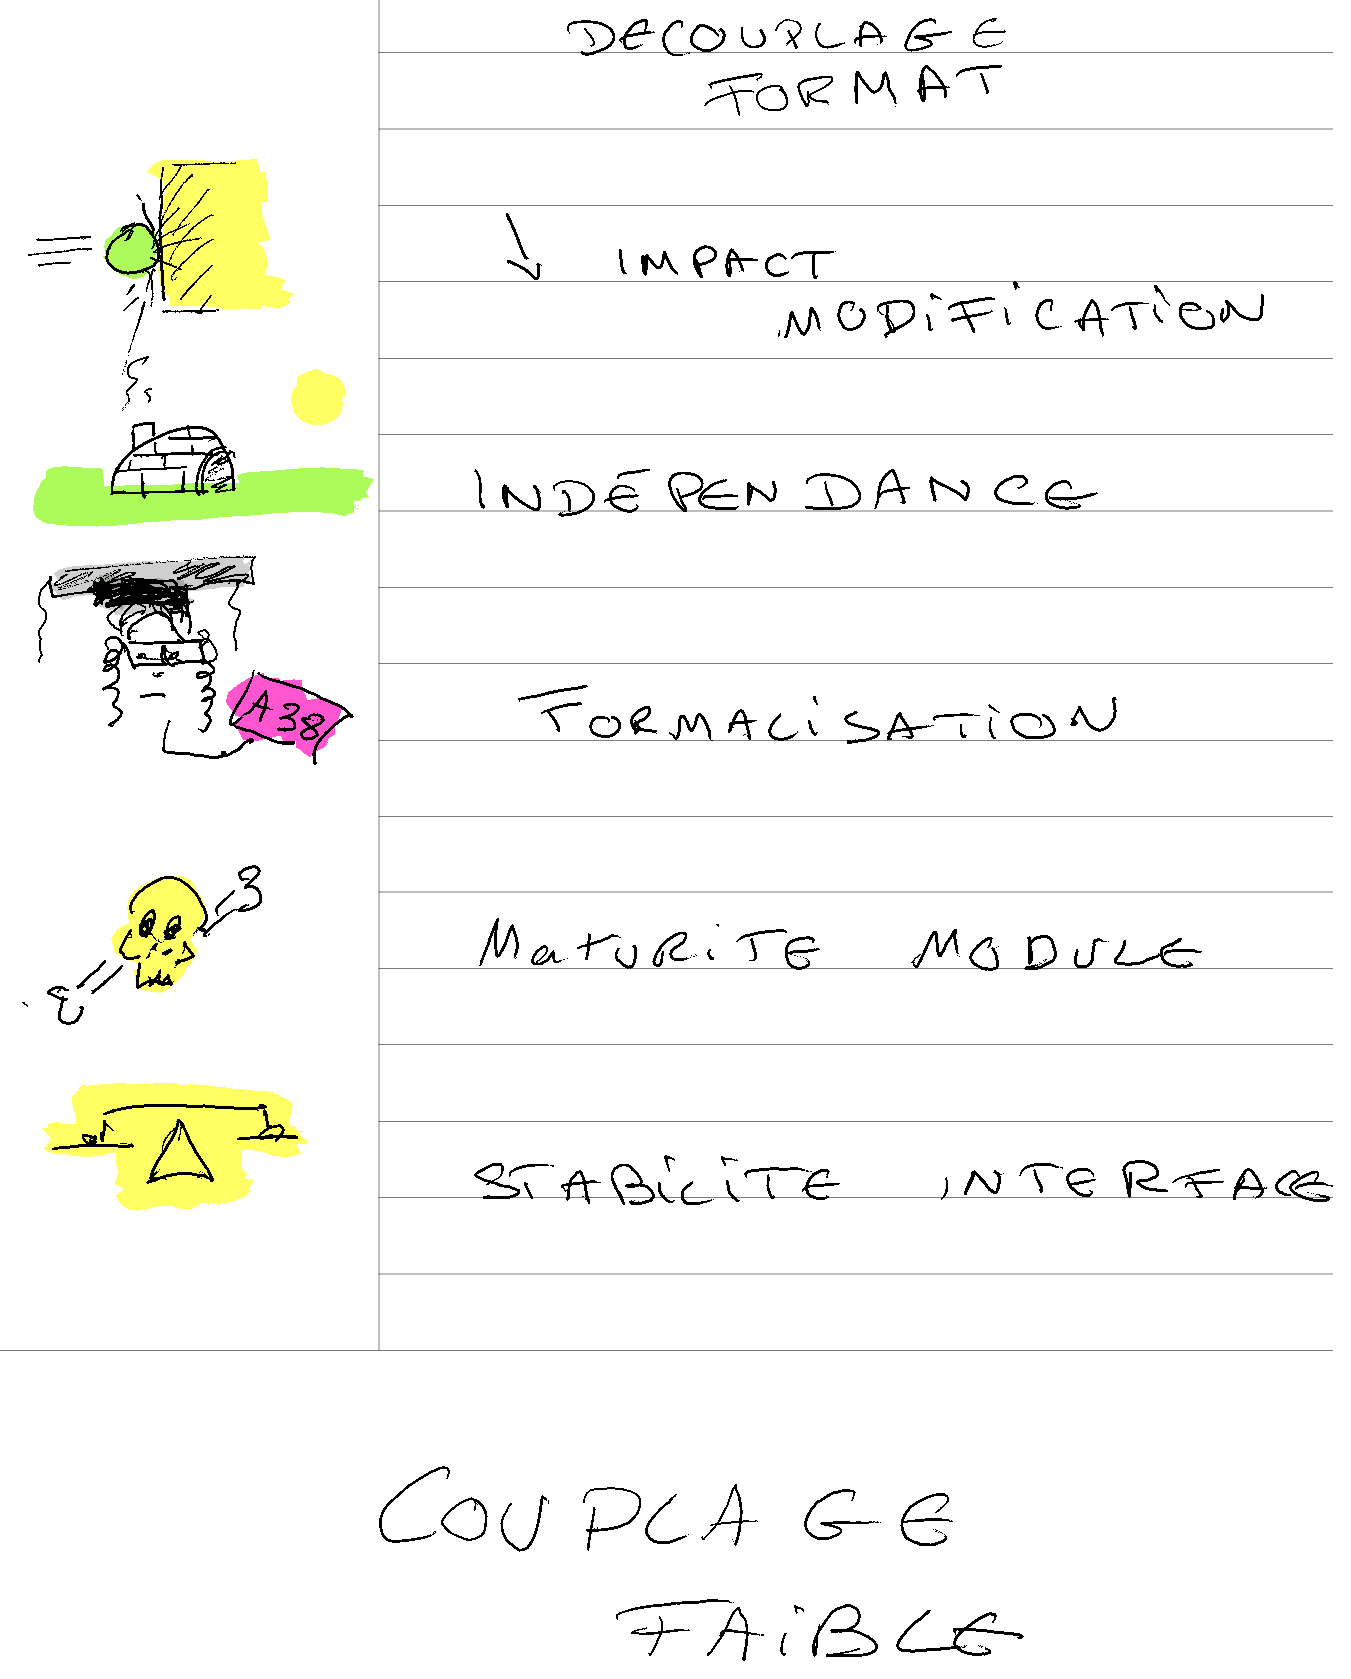 DECOUPLAGE
FORMAT
↓ IMPACT
MODiFiCATiON
INDÉPENDANCE
A38
FORMALiSATiON
MaTURiTE MODULE
STABiLiTE INTERFACE
COUPLAGE
FAiBLE